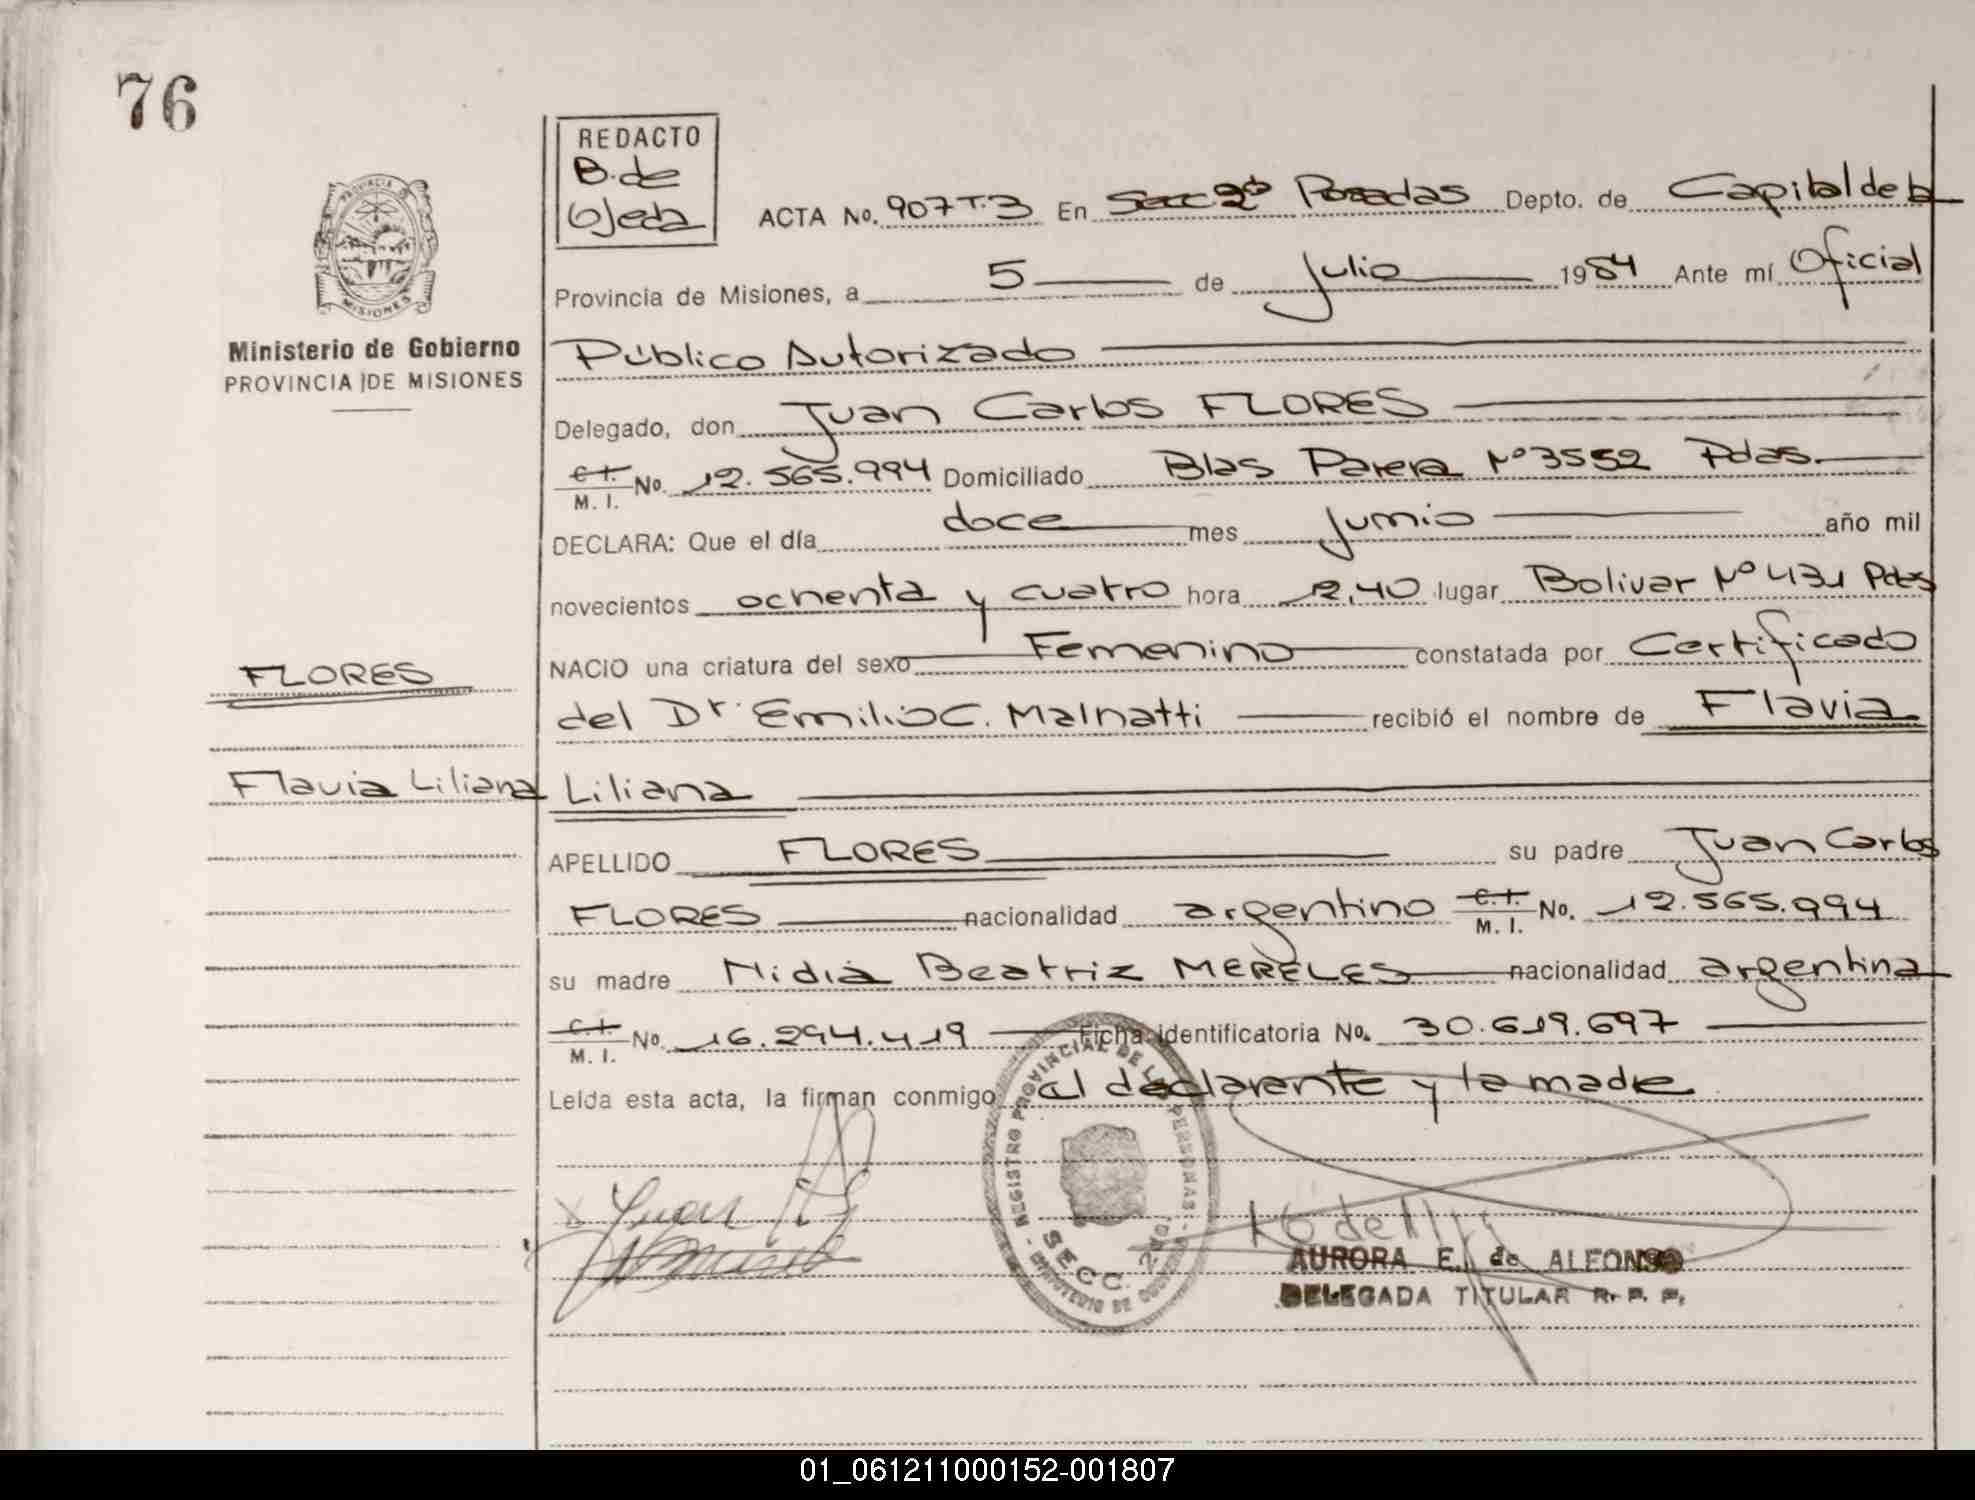 76
REDACTO
B. de
Ojeda
ACTA No. 907 T.3 En Secc 2º Posadas Depto. de Capital de la
Provincia de Misiones, a 5 de Julio 1984 Ante mí Oficial
Público Autorizado
Delegado, don Juan Carlos FLORES
C. I. M. I. No. 12.565.994 Domiciliado Blas Parera Nº 3552 Pdas.
DECLARA: Que el día doce mes junio año mil
novecientos ochenta y cuatro hora 12,40 lugar Bolivar Nº 431 Pdas
NACIO una criatura del sexo Femenino constatada por Certificado
del Dr. Emilio C. Malnatti recibió el nombre de Flavia
Liliana
APELLIDO FLORES su padre Juan Carlos
FLORES nacionalidad argentino C. I. M. I. No. 12.565.994
su madre Nidia Beatriz MERELES nacionalidad argentina
C. I. M. I. No. 16.294.419 Ficha identificatoria No. 30.619.697
Leída esta acta, la firman conmigo el declarante y la madre
Ministerio de Gobierno
PROVINCIA DE MISIONES
PROVINCIA DE
MISIONES
FLORES
Flavia Liliana
Juan
REGISTRO PROVINCIAL DE LAS PERSONAS
SECC. 2
AURORA E. de ALFONSO
DELEGADA TITULAR R. P. P.
01_061211000152-001807